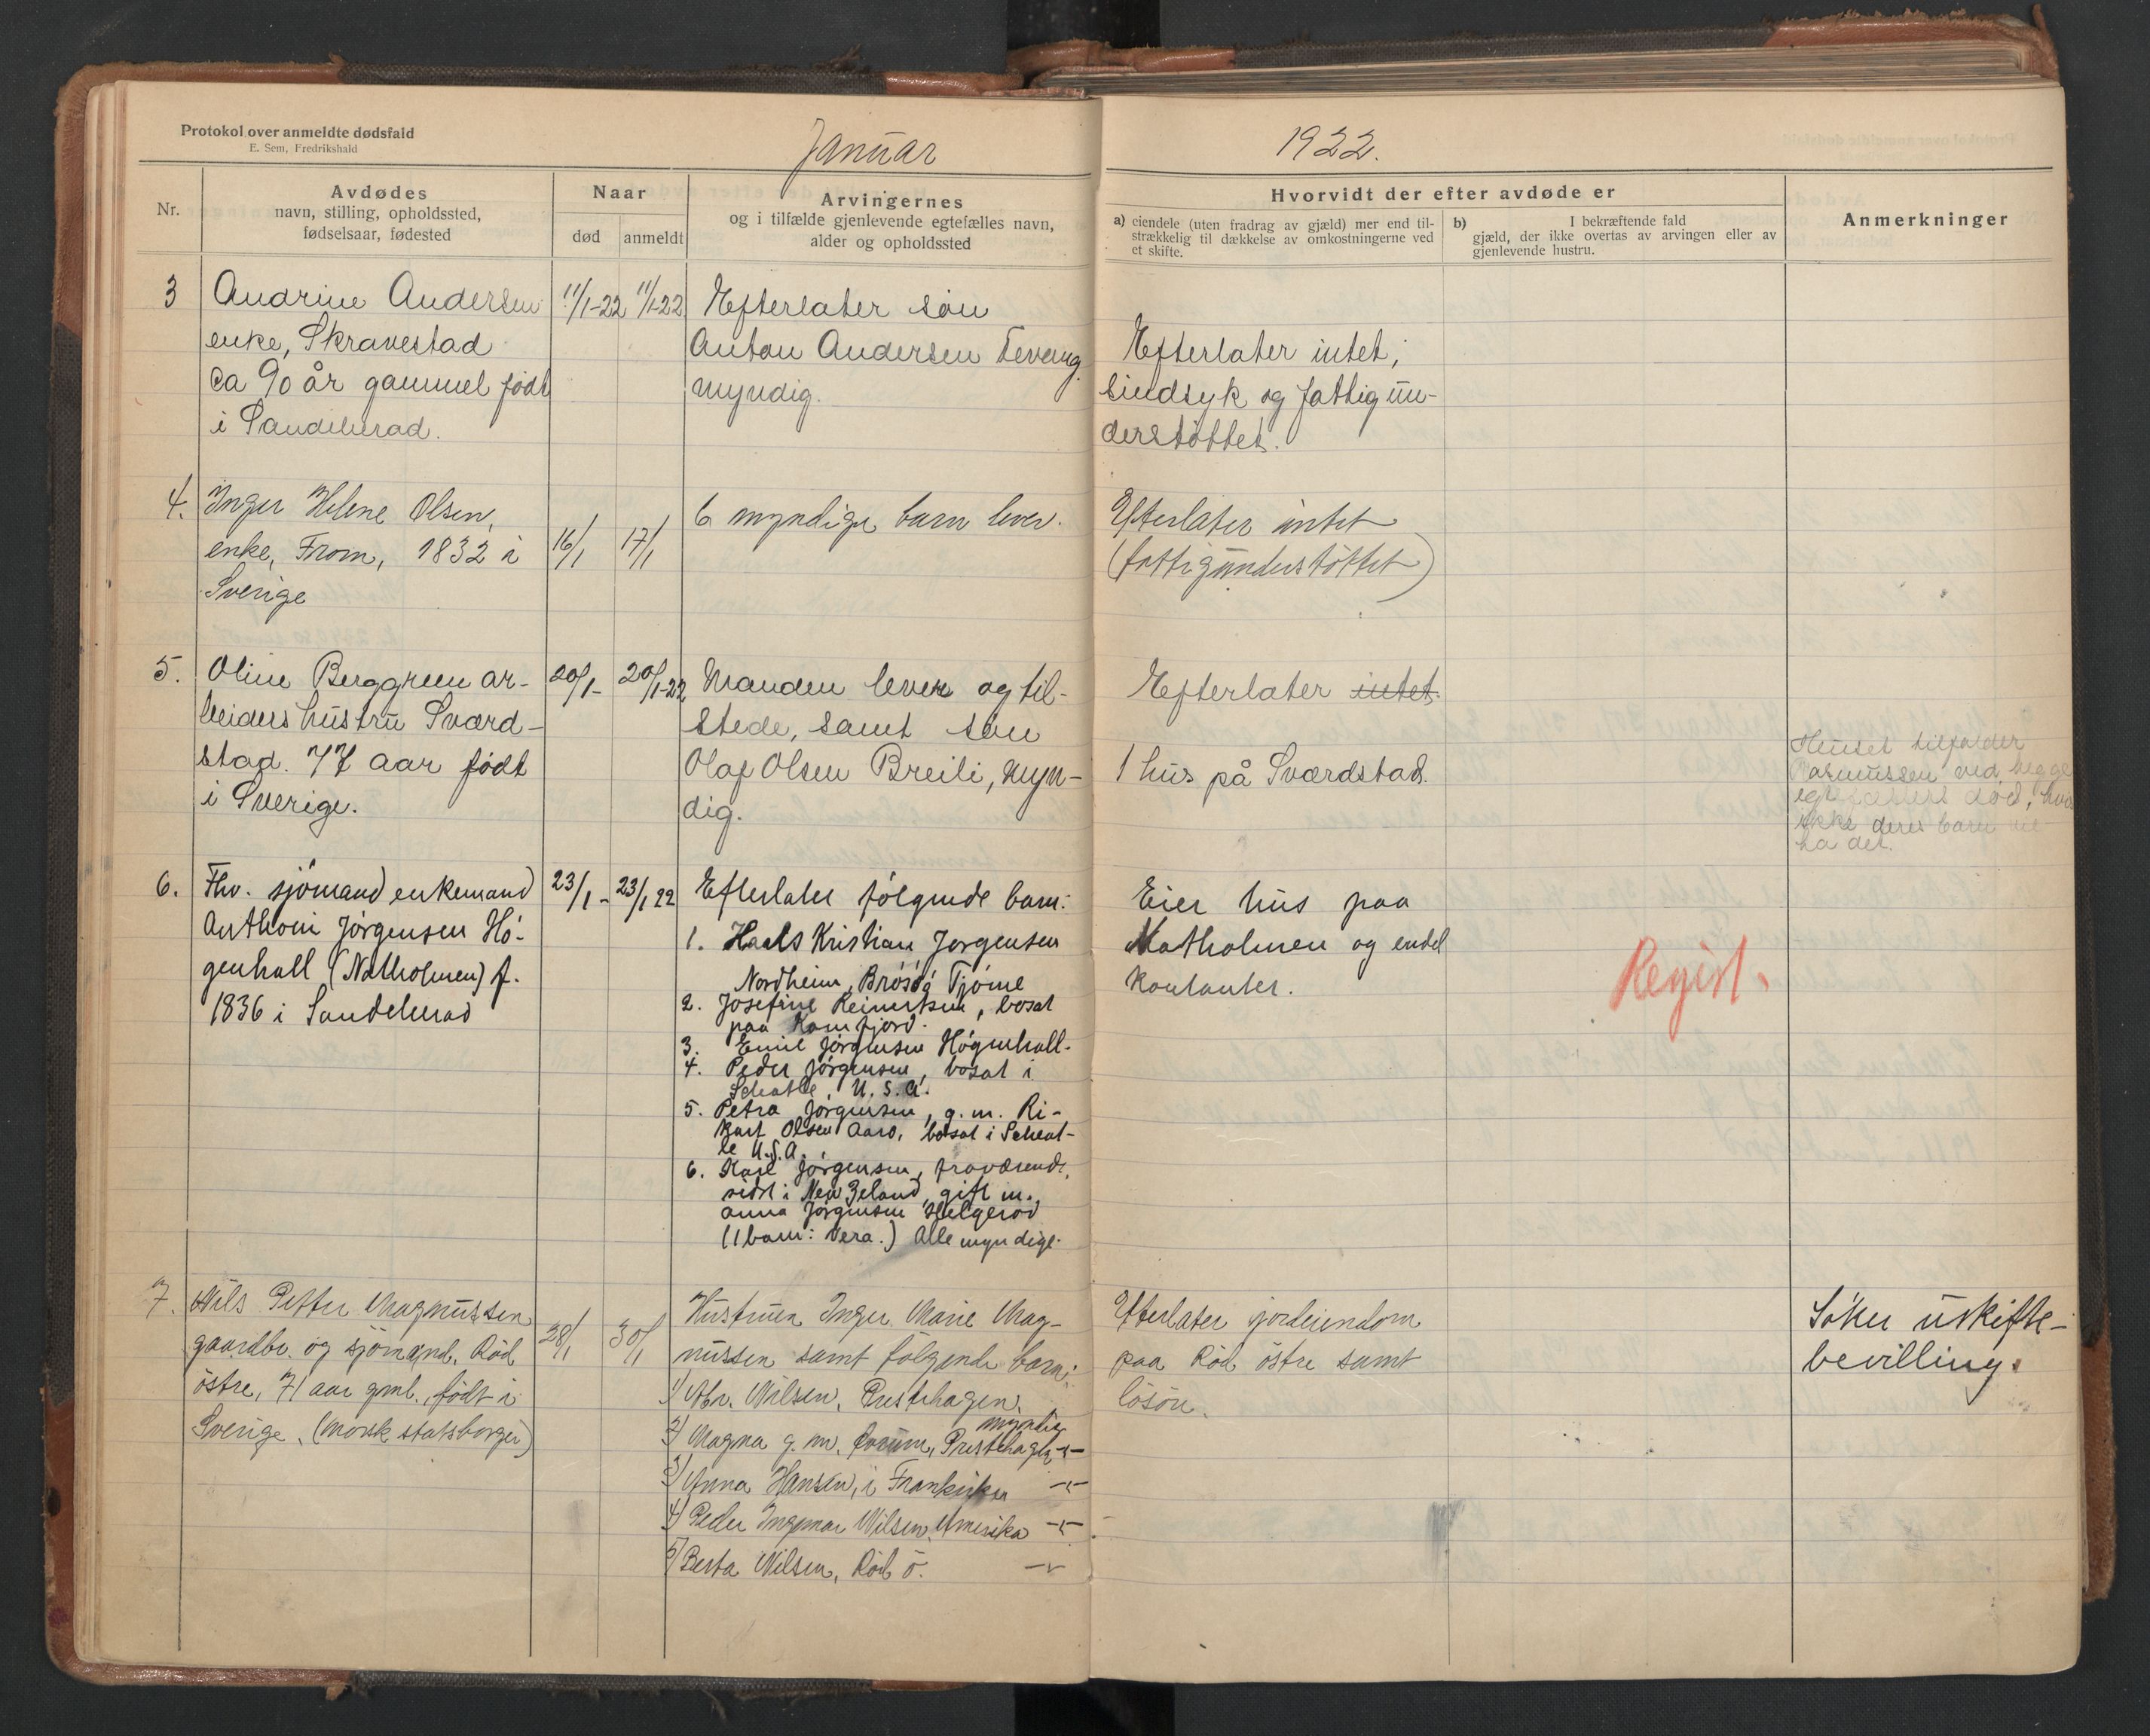 Protokol over anmeldte dødsfald
E. Sem, Fredrikshald
Januar
1922.
Nr.
Avdødes
navn, stilling, opholdssted,
fødselsaar, fødested
Naar
død
anmeldt
Arvingernes
og i tilfælde gjenlevende egtefælles navn,
alder og opholdssted
Hvorvidt der efter avdøde er
a) eiendele (uten fradrag av gjæld) mer end til-
strækkelig til dækkelse av omkostningerne ved
et skifte.
b) I bekræftende fald
gjæld, der ikke overtas av arvingen eller av
gjenlevende hustru.
Anmerkninger
3
Andrine Andersen
enke, Skravestad
ca 90 år gammel født
i Sandeherad.
11/1-22
11/1-22
Efterlater søn
Anton Andersen Tevang.
myndig.
Efterlater intet;
sindsyk og fattigun-
derstøttet.
4.
Inger Helene Olsen,
enke, From, 1832 i
Sverige
16/1
17/1
6 myndige barn lever.
Efterlater intet
(fattigunderstøttet)
5.
Oline Berggreen ar-
beiders hustru Sværd-
stad. 77 aar født
i Sverige.
20/1-
20/1-22
Manden lever og til-
stede, samt søn
Olaf Olsen Breili, myn-
dig.
Efterlater intet
1 hus på Sværdstad.
Huset tilfalder
Rasmussen ved begge
egtefællers død, hvis
ikke deres barn vil
ha det.
6.
Fhv. sjömand enkemand
Anthoni Jørgensen Hö-
genhall (Natholmen) f.
1836 i Sandeherad
23/1-
23/1 22
Efterlater følgende barn:
1. Hans Kristian Jørgensen
Nordheim, Brösø Tjöme
2. Josefine Reinertsen, bosat
paa Kamfjord.
3. Emil Jørgensen Högenhall.
4. Peder Jørgensen, bosat i
Seheatle, U.S.A.
5. Petra Jørgensen, g. m. Ri-
kart Olsen Aarø, bosat i Seheat-
le U.S.A.
6. Karl Jørgensen, fraværende,
sidst i New Zeland, gift m.
Anna Jørgensen Helgerød
(1 barn: Vera.) Alle myndige.
Eier hus paa
Natholmen og endel
kontanter.
Regist.
7.
Nils Petter Magnussen
gaardbr. og sjömand, Röd
östre, 71 aar gml., født i
Sverige. (norsk statsborger)
28/1
30/1
Hustruen Inger Marie Mag-
nussen samt følgende barn:
1) Abr. Nilsen, Prestehagen, myndig
2) Magna g. m. Prestehagen -"-
3) Anna Hansen, i Frankrike -"-
4) Peder Ingemar Nilsen, Amerika -"-
5) Berta Nilsen, Röd ö. -"-
Efterlater jordeiendom
paa Röd östre samt
lösöre.
Söker uskifte-
bevilling.